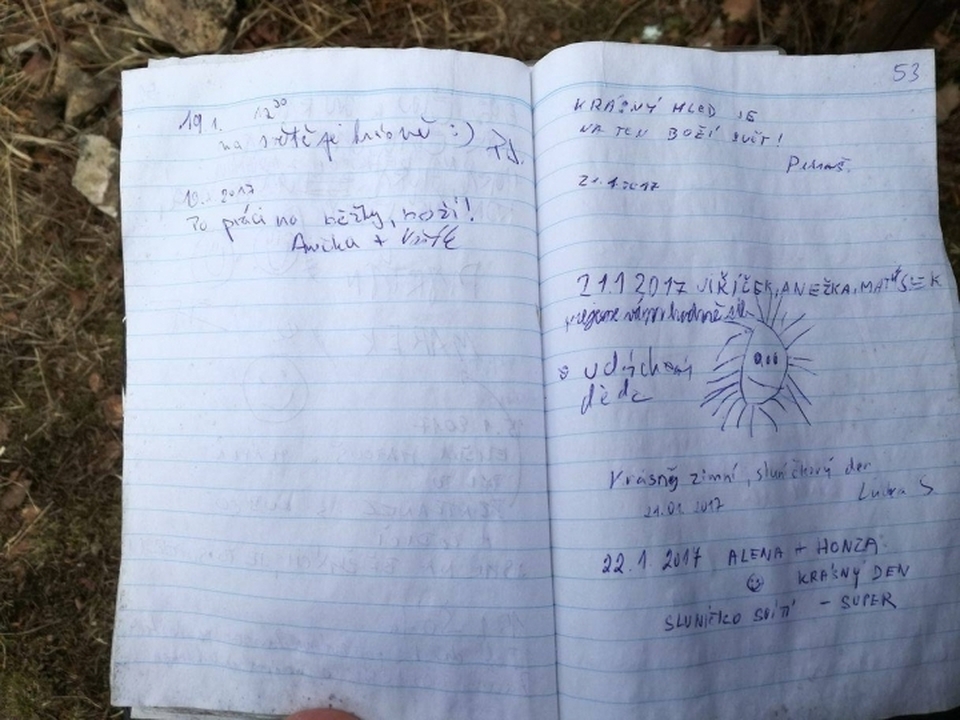 19 1. 12 30
na světě je krásně :)
Po práci na běžky, boží!
Anička +
53
KRÁSNÝ HLED JE
NA TEN BOŽÍ SVĚT!
21.1.2017
21.1 2017 JIŘÍČEK, ANEŽKA, MATÝSEK
hodně
udýchaný
děda
Krásný zimní, sluníčkový den
Lucka S
21.01. 2017
22.1.2017 ALENA + HONZA
KRÁSNÝ DEN
SLUNÍČKO SVÍTÍ - SUPER